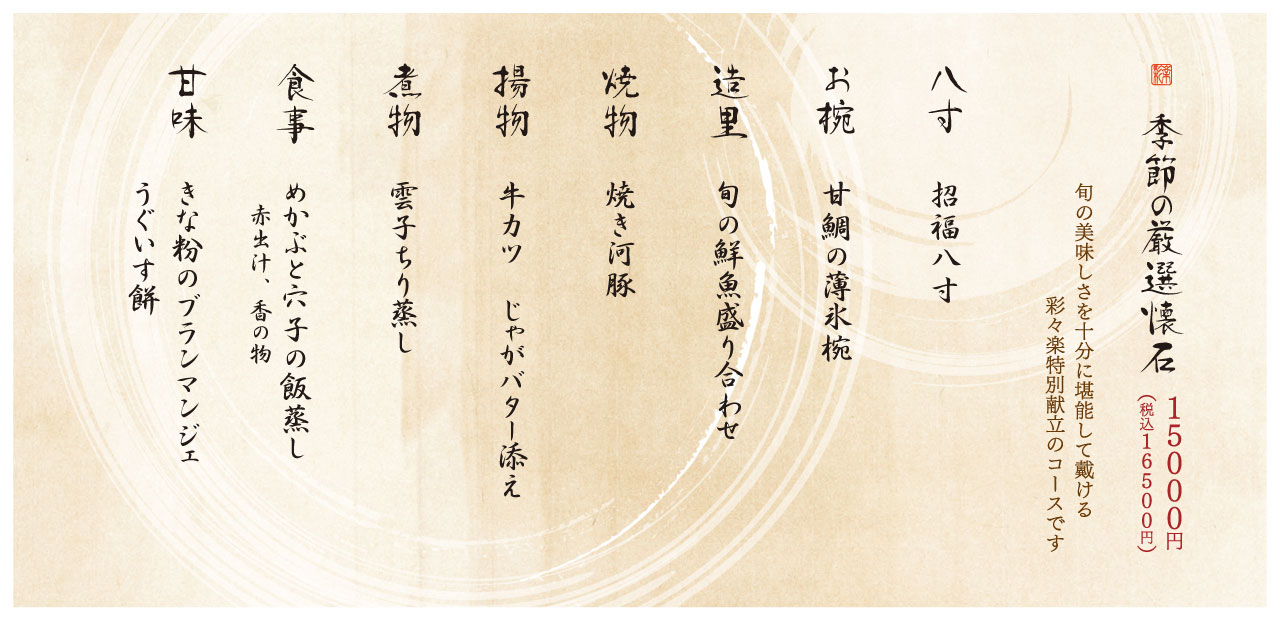 季節の厳選懐石
15000円
(税込16500円)
旬の美味しさを十分に堪能して戴ける
彩々楽特別献立のコースです
八寸 招福八寸
お椀 甘鯛の薄氷椀
造里 旬の鮮魚盛り合わせ
焼物 焼き河豚
揚物 牛カツ じゃがバター添え
煮物 雲子ちり蒸し
食事 めかぶと穴子の飯蒸し
赤出汁、香の物
甘味 きな粉のブランマンジェ
うぐいす餅